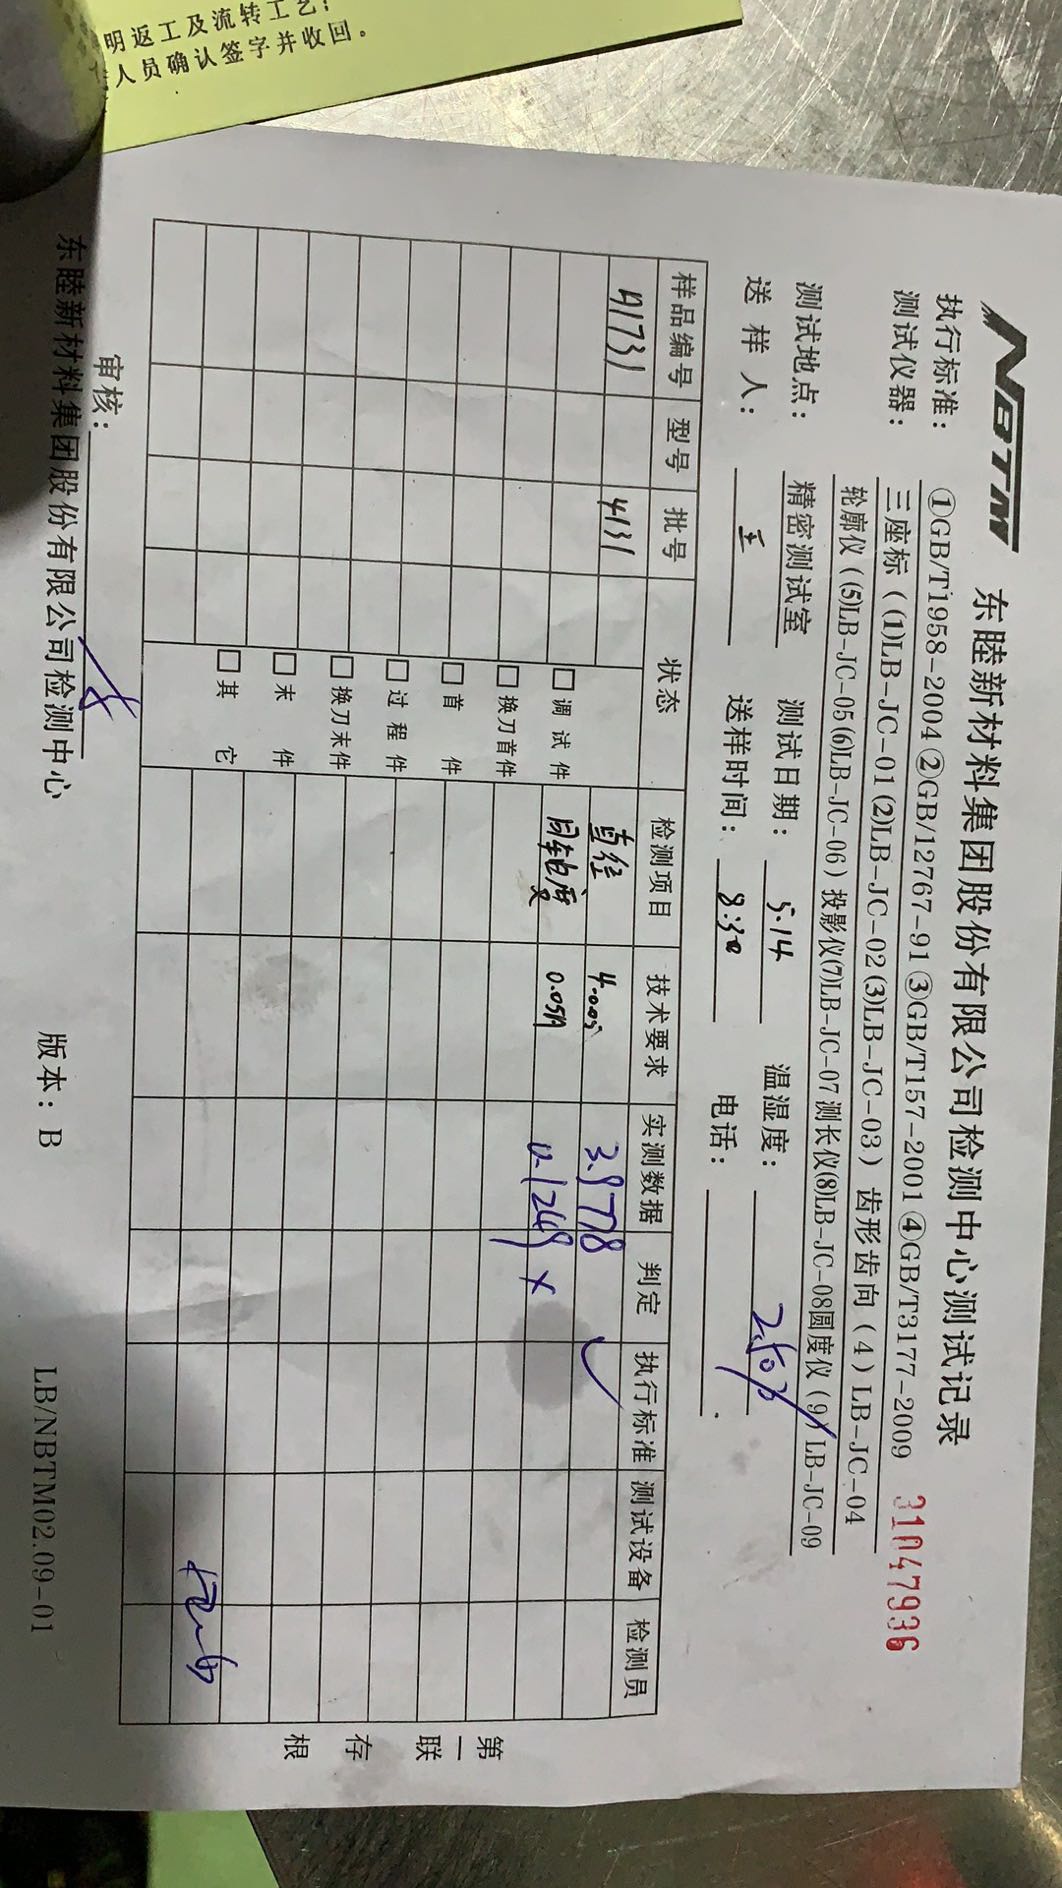 明返工及流转工艺；
人员确认签字并收回。
NBTM 东睦新材料集团股份有限公司检测中心测试记录
31047936
执行标准： ①GB/T1958-2004②GB/12767-91③GB/T157-2001④GB/T3177-2009
测试仪器： 三座标（(1)LB-JC-01(2)LB-JC-02(3)LB-JC-03）齿形齿向（4）LB-JC-04
轮廓仪（(5)LB-JC-05(6)LB-JC-06）投影仪(7)LB-JC-07 测长仪(8)LB-JC-08圆度仪（9）LB-JC-09
测试地点： 精密测试室 测试日期： 5.14 温湿度：
送 样 人： 王 送样时间： 8:30 电话：
样品编号 型号 批号 状态 检测项目 技术要求 实测数据 判定 执行标准 测试设备 检测员
41731 4131 直径 4.005 3.9778 ✓
□调 试 件 同轴度 0.05A 0.1249 ×
□换刀首件
□首 件
□过 程 件
□换刀末件
□末 件
□其 它
第一联 存根
审核：
东睦新材料集团股份有限公司检测中心 版本：B LB/NBTM02.09-01